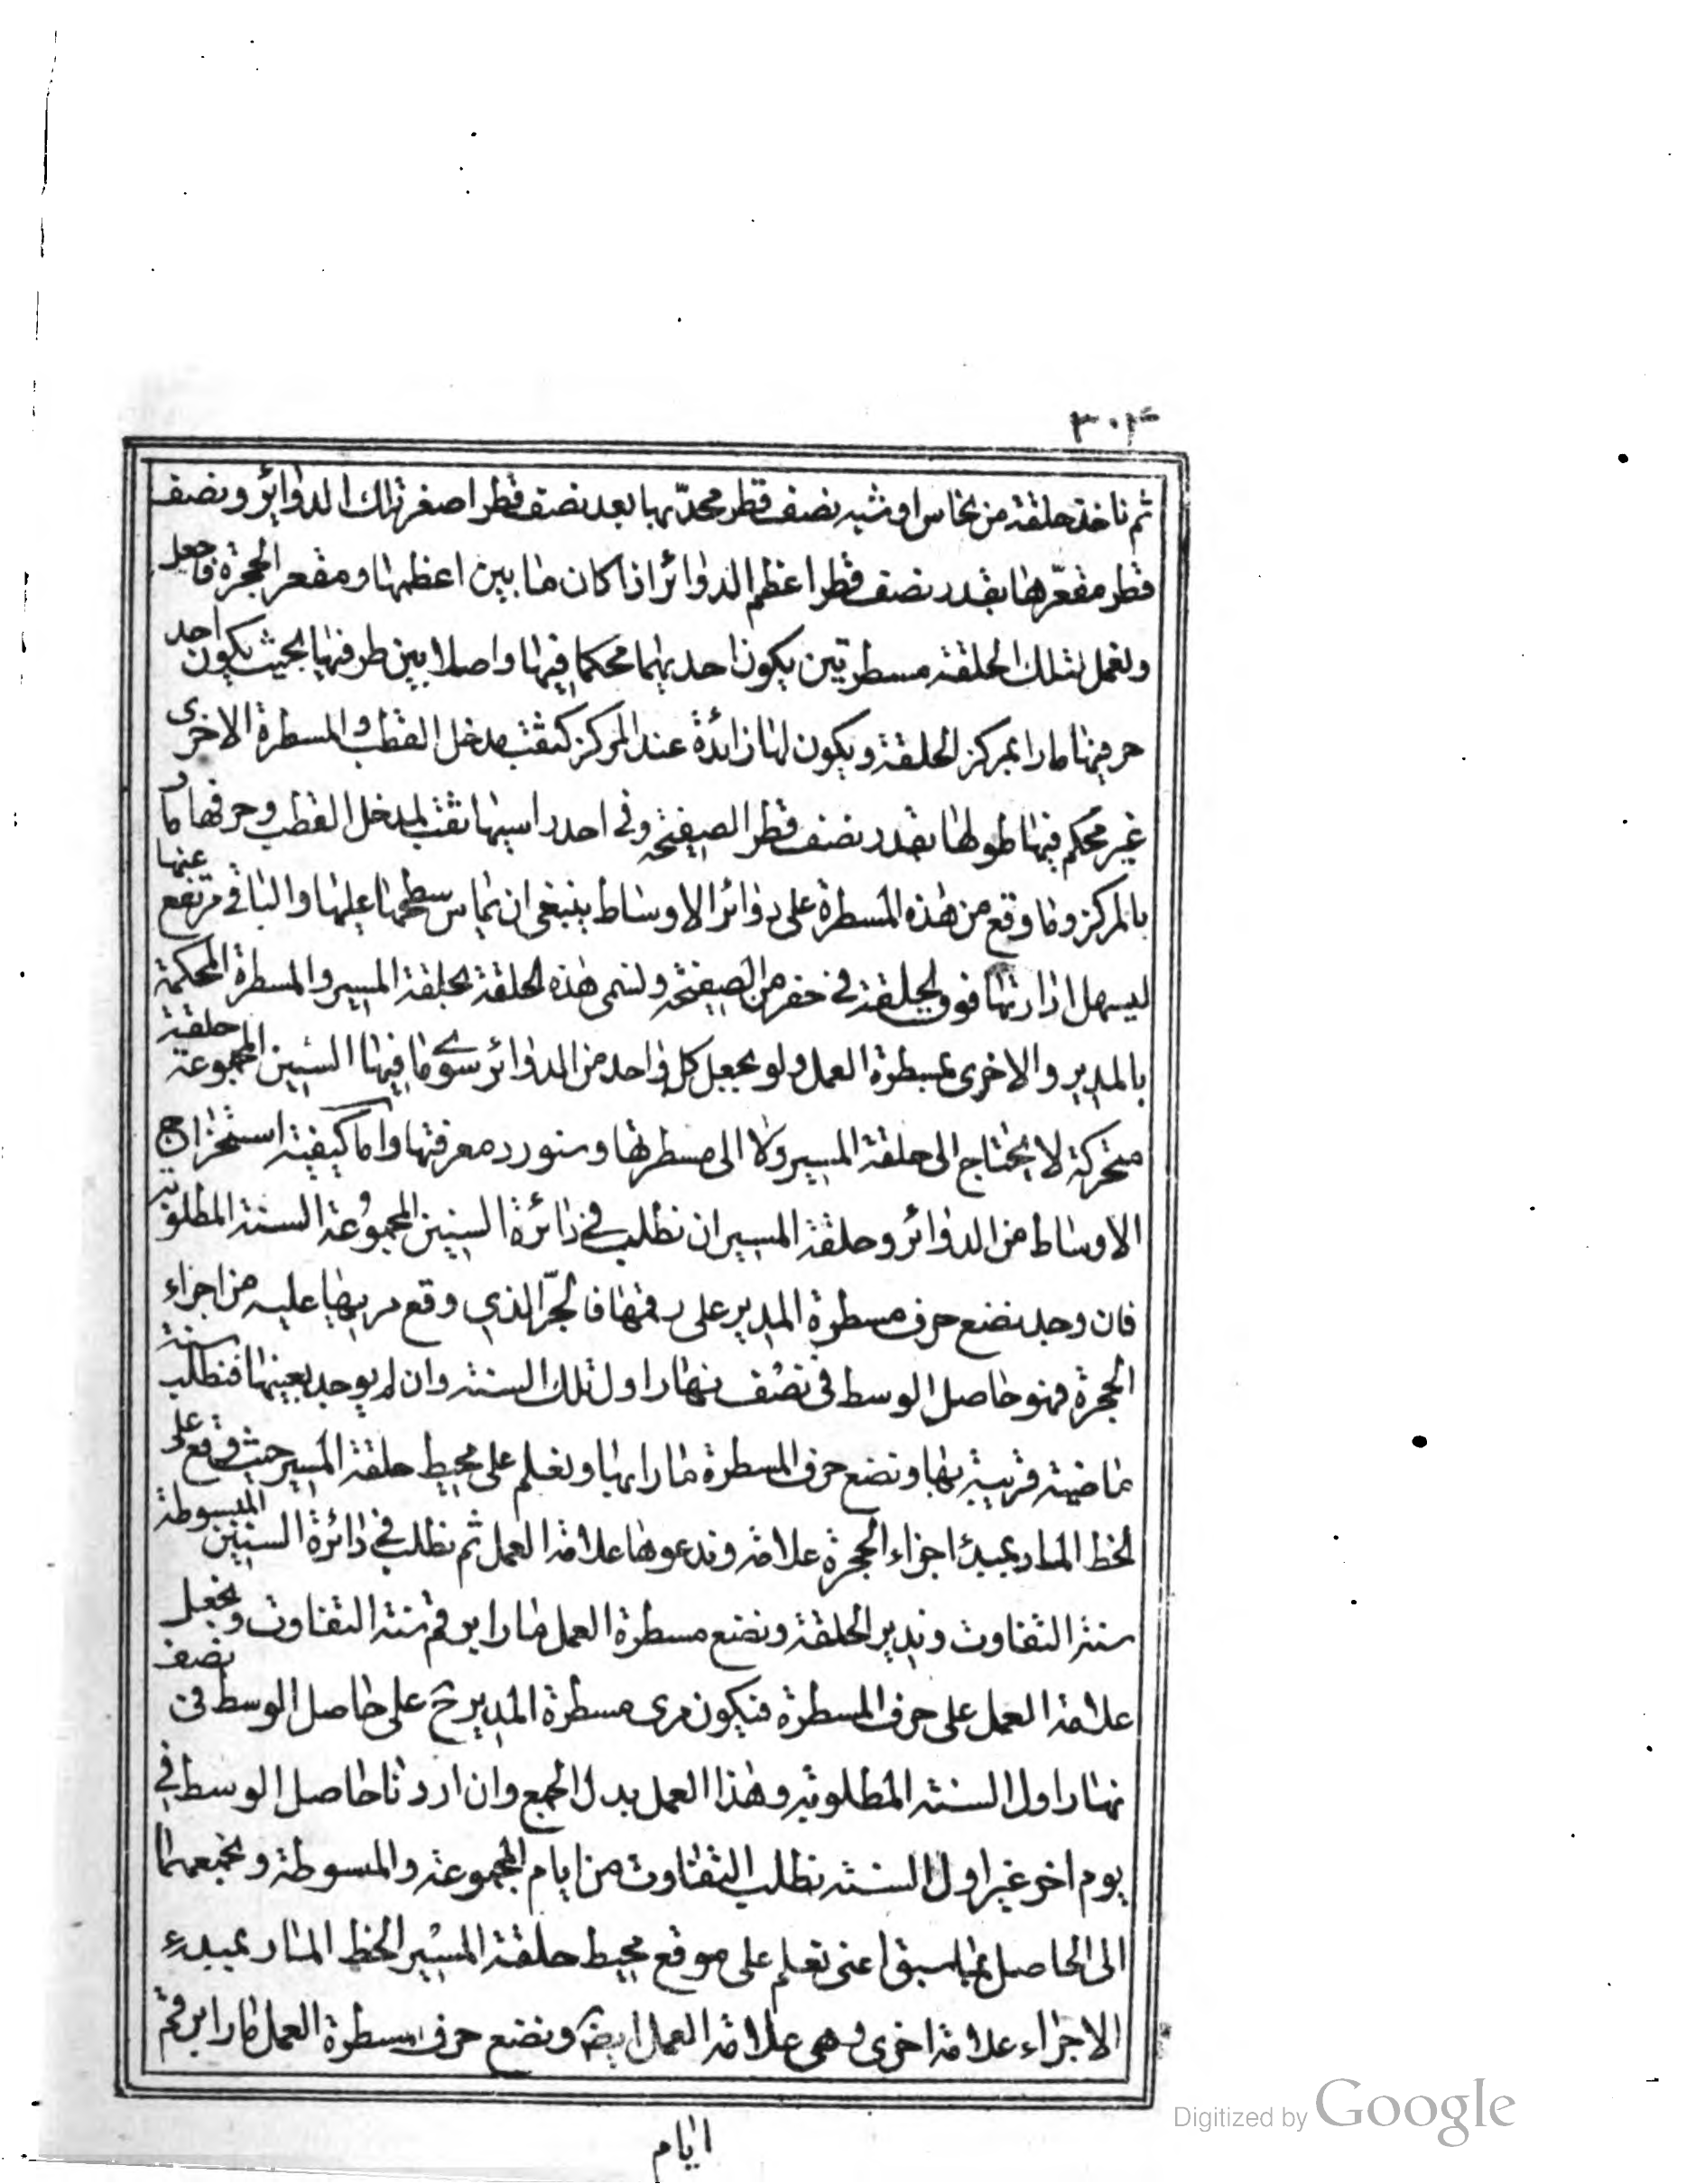 ٣٠۴
ثم ناخذ حلقة من نحاس او شبه نصف قطر محدّبها بعد نصف قطر اصغر تلك الدوائر ونصف
قطر مقعّرها بقدر نصف قطر اعظم الدوائر اذا كان ما بين اعظمها ومقعر الحجرة فاصل
ولنعمل لتلك الحلقة مسطرتين يكون احديهما محكما فيها واصلا بين طرفيها بحيث يكون احد
حرفيها مارا بمركز الحلقة ويكون لها زائدة عند المركز كثقب مدخل القطب والمسطرة الاخرى
غير محكم فيها طولها بقدر نصف قطر الصفيحة وفي احد راسيها ثقب لمدخل القطب وحرفها مارّا
بالمركز وما وقع من هذه المسطرة على دوائر الاوساط ينبغي ان يماس سطحها عليها والباقي مرتفع عنها
ليسهل ادارتها فوق الحلقة في حفر من الصفيحة ولنسمى هذه الحلقة بحلقة المسير والمسطرة المحكمة
بالمدير والاخرى بمسطرة العمل ولو نجعل كل واحد من الدوائر سوى ما فيها السنين المجموعة حلقة
متحركة لا يحتاج الى حلقة المسير ولا الى مسطرتها وسنورد معرفتها واما كيفية استخراج
الاوساط من الدوائر وحلقة المسير ان نطلب في دائرة السنين المجموعة السنة المطلوبة
فان وجد نضع حرف مسطرة المدير على رقمها فالجزّ الذي وقع مريها عليه من اجزاء
الحجرة فهو حاصل الوسط في نصف نهار اول تلك السنة وان لم يوجد بعينها فنطلب سنة
ماضية قريبة بها ونضع حرف المسطرة مارا بها ونعلم على محيط حلقة المسير حيث وقع على
الخط المار بمبدء اجزاء الحجرة علامة وندعوها علامة العمل ثم نطلب في دائرة السنين المبسوطة
سنة التفاوت وندير الحلقة ونضع مسطرة العمل مارا برقم سنة التفاوت ونجعل
علامة العمل على حرف المسطرة فيكون مرى مسطرة المدير ح على حاصل الوسط في نصف
نهار اول السنة المطلوبة وهذا العمل بدل الجمع وان اردنا حاصل الوسط في
يوم اخر غير اول السنة نطلب التفاوت من ايام المجموعة والمبسوطة ونجمعهما
الى الحاصل بما سبق اعنى نعلم على موقع محيط حلقة المسير الخط المار بمبدء
الاجزاء علامة اخرى وهى علامة العمل ايضا ونضع حرف مسطرة العمل مارا برقم
ايام
Digitized by Google